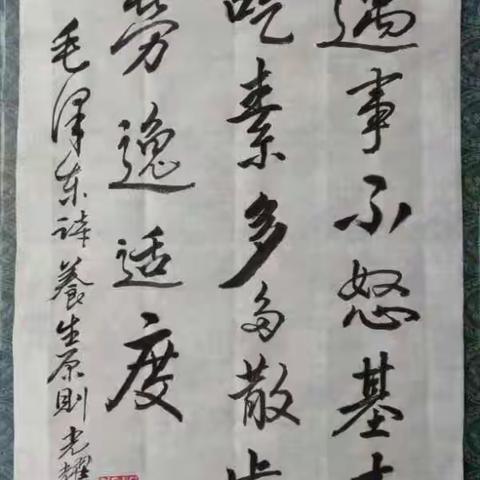 遇事不怒基本
吃素多多散步
劳逸适度
毛泽东诗養生原則光耀